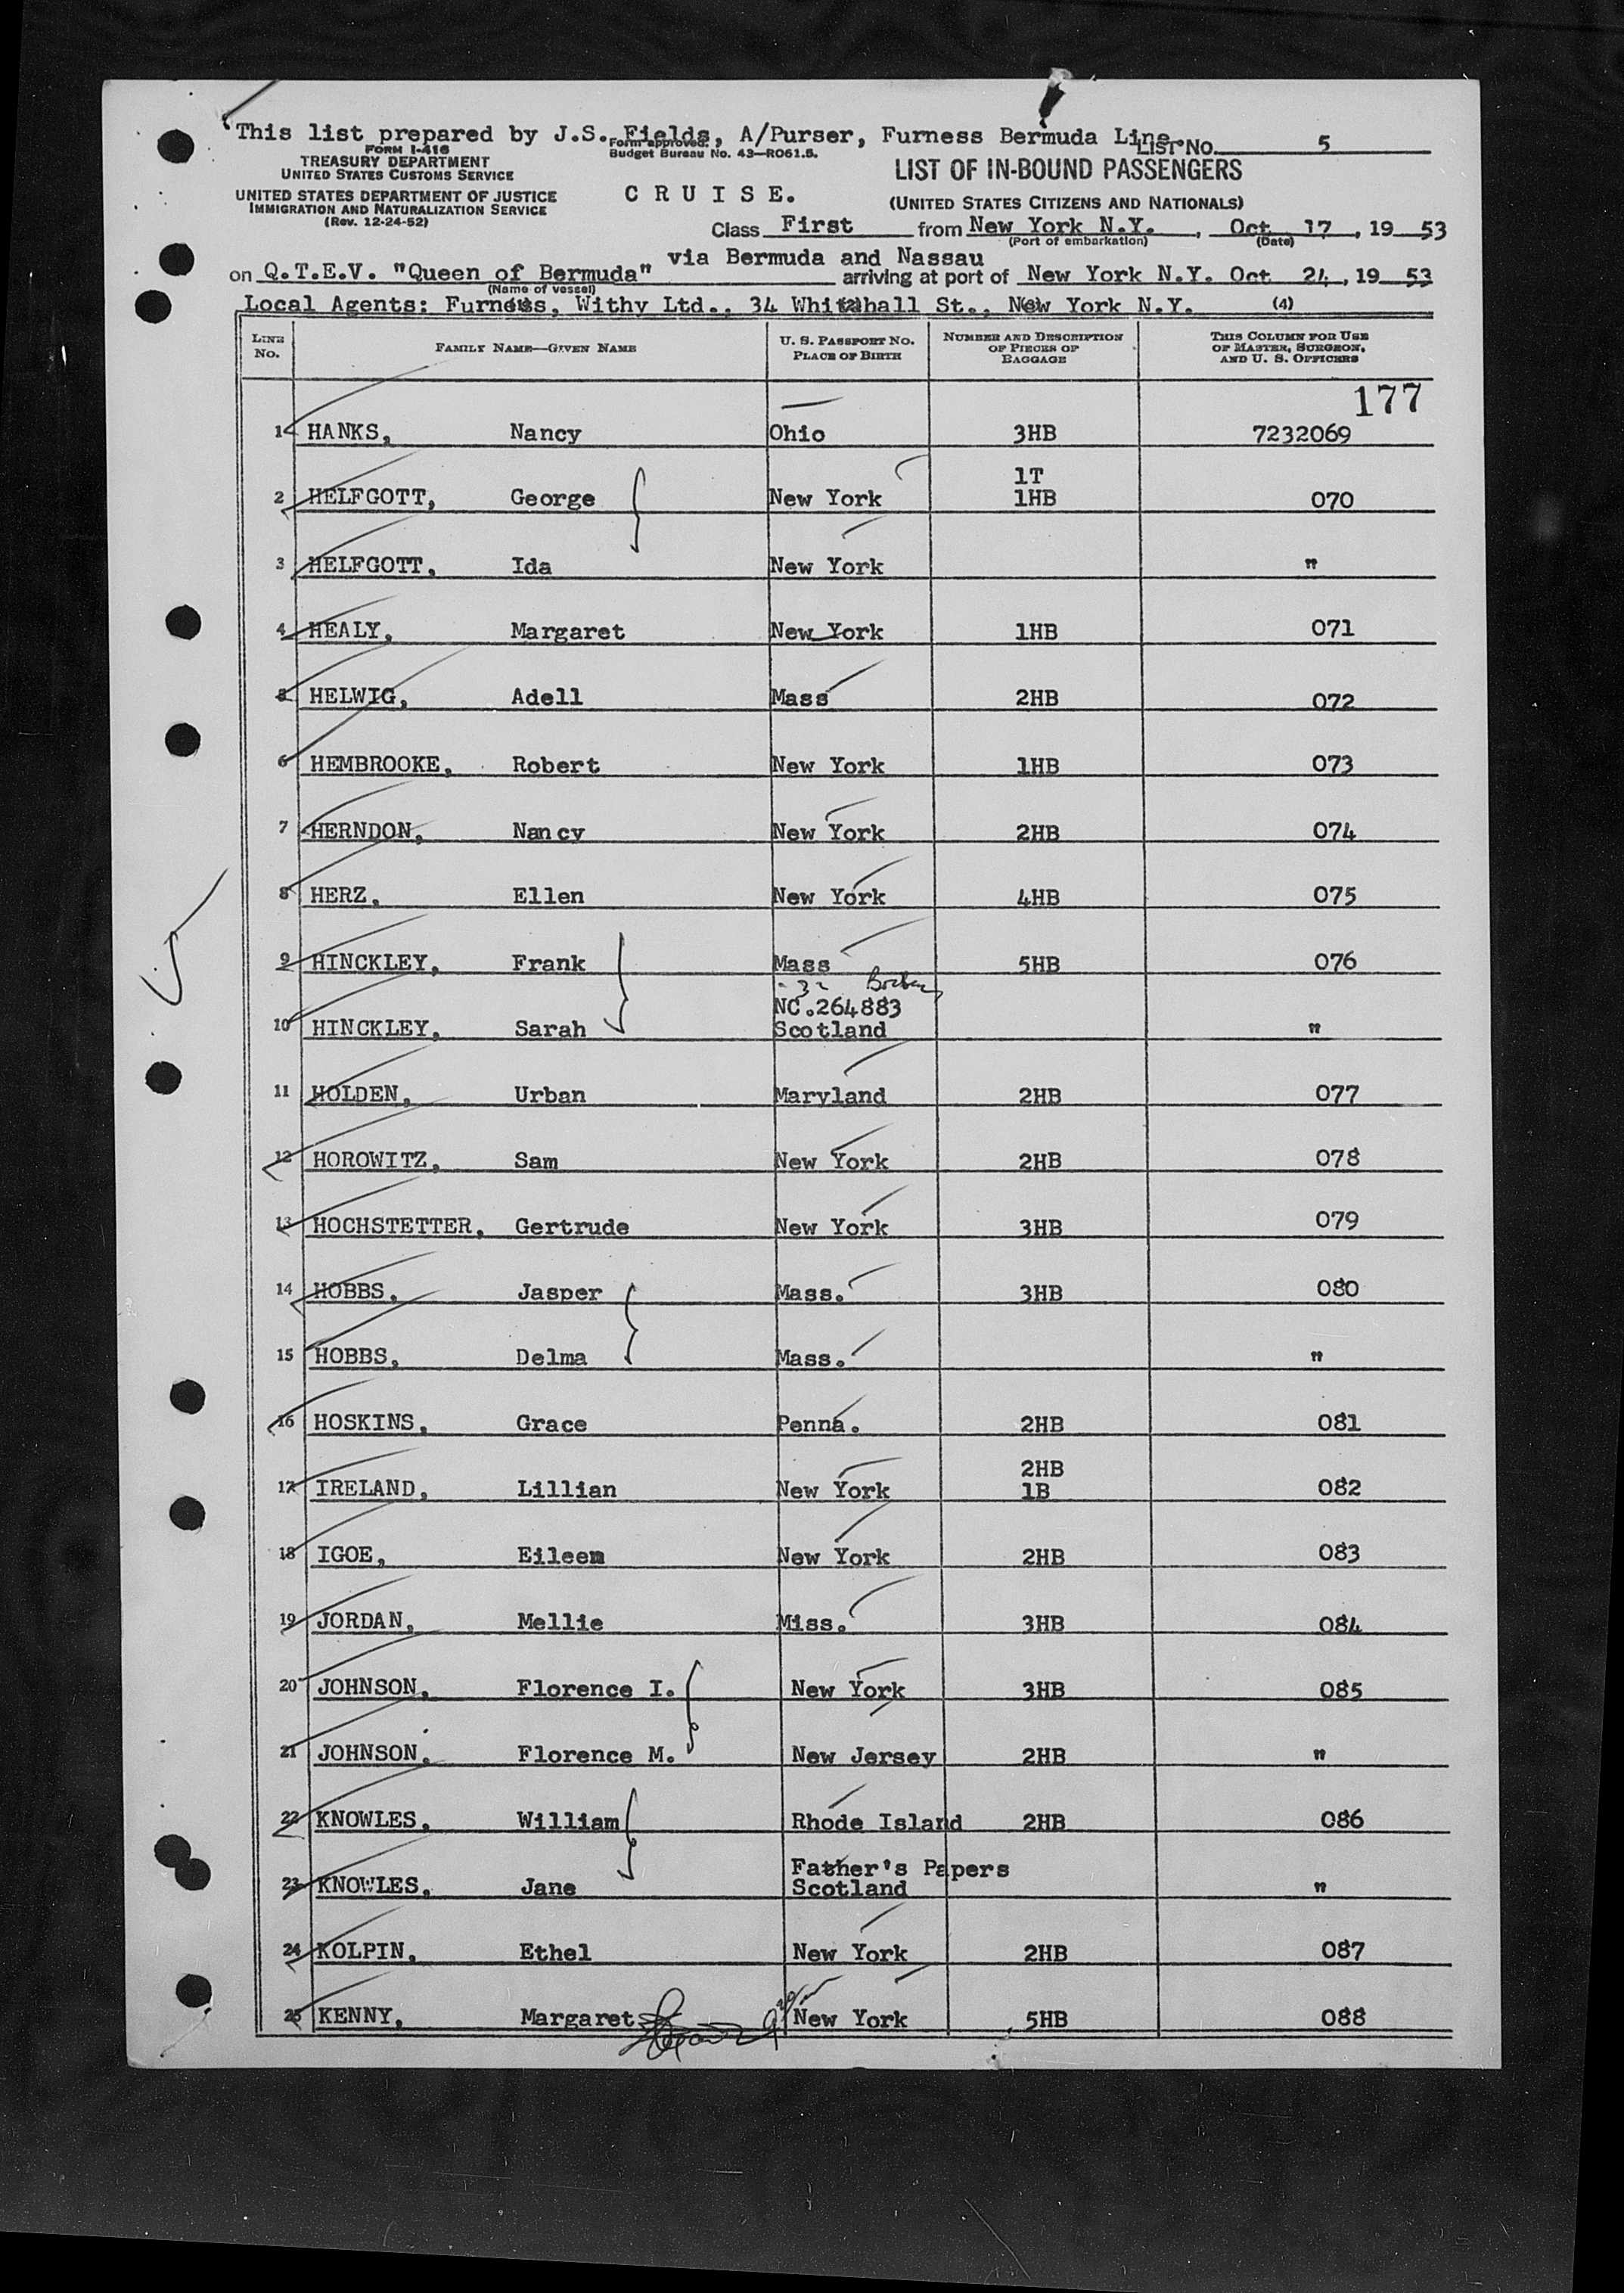 This list prepared by J.S. Fields, A/Purser, Furness Bermuda Line
List No. 5
FORM I-416
TREASURY DEPARTMENT
UNITED STATES CUSTOMS SERVICE
UNITED STATES DEPARTMENT OF JUSTICE
IMMIGRATION AND NATURALIZATION SERVICE
(Rev. 12-24-52)
Form approved.
Budget Bureau No. 43—RO61.5.
C R U I S E.
LIST OF IN-BOUND PASSENGERS
(UNITED STATES CITIZENS AND NATIONALS)
Class First from New York N.Y., Oct 17, 19 53
(Port of embarkation) (Date)
via Bermuda and Nassau
on Q.T.E.V. "Queen of Bermuda" arriving at port of New York N.Y. Oct 24, 19 53
(Name of vessel)
Local Agents: Furness, Withy Ltd., 34 Whitehall St., New York N.Y. (4)
LINE No. FAMILY NAME—GIVEN NAME U. S. PASSPORT NO. PLACE OF BIRTH NUMBER AND DESCRIPTION OF PIECES OF BAGGAGE THIS COLUMN FOR USE OF MASTER, SURGEON, AND U. S. OFFICERS
177
1 HANKS, Nancy Ohio 3HB 7232069
1T
2 HELFGOTT, George New York 1HB 070
3 HELFGOTT, Ida New York "
4 HEALY, Margaret New York 1HB 071
5 HELWIG, Adell Mass 2HB 072
6 HEMBROOKE, Robert New York 1HB 073
7 HERNDON, Nancy New York 2HB 074
8 HERZ, Ellen New York 4HB 075
9 HINCKLEY, Frank Mass 5HB 076
NC.264883
10 HINCKLEY, Sarah Scotland "
11 HOLDEN, Urban Maryland 2HB 077
12 HOROWITZ, Sam New York 2HB 078
13 HOCHSTETTER, Gertrude New York 3HB 079
14 HOBBS, Jasper Mass. 3HB 080
15 HOBBS, Delma Mass. "
16 HOSKINS, Grace Penna. 2HB 081
2HB
17 IRELAND, Lillian New York 1B 082
18 IGOE, Eileen New York 2HB 083
19 JORDAN, Mellie Miss. 3HB 084
20 JOHNSON, Florence I. New York 3HB 085
21 JOHNSON, Florence M. New Jersey 2HB "
22 KNOWLES, William Rhode Island 2HB 086
Father's Papers
23 KNOWLES, Jane Scotland "
24 KOLPIN, Ethel New York 2HB 087
25 KENNY, Margaret New York 5HB 088